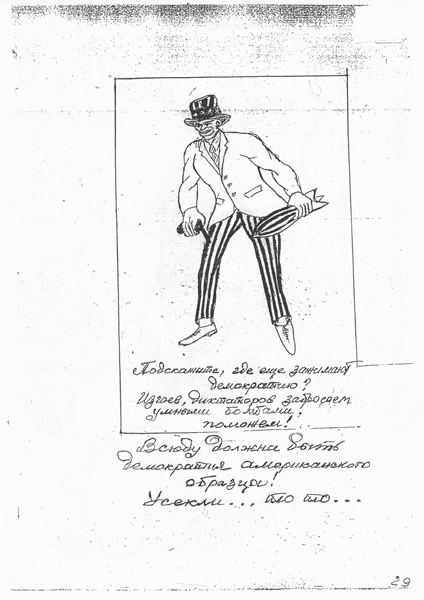 Подскажите, где еще зажимают
демократию?
Изгоев, диктаторов забросаем
умными бомбами,
поможем!
Всюду должна быть
демократия американского
образца!
Усекли... то то...
29